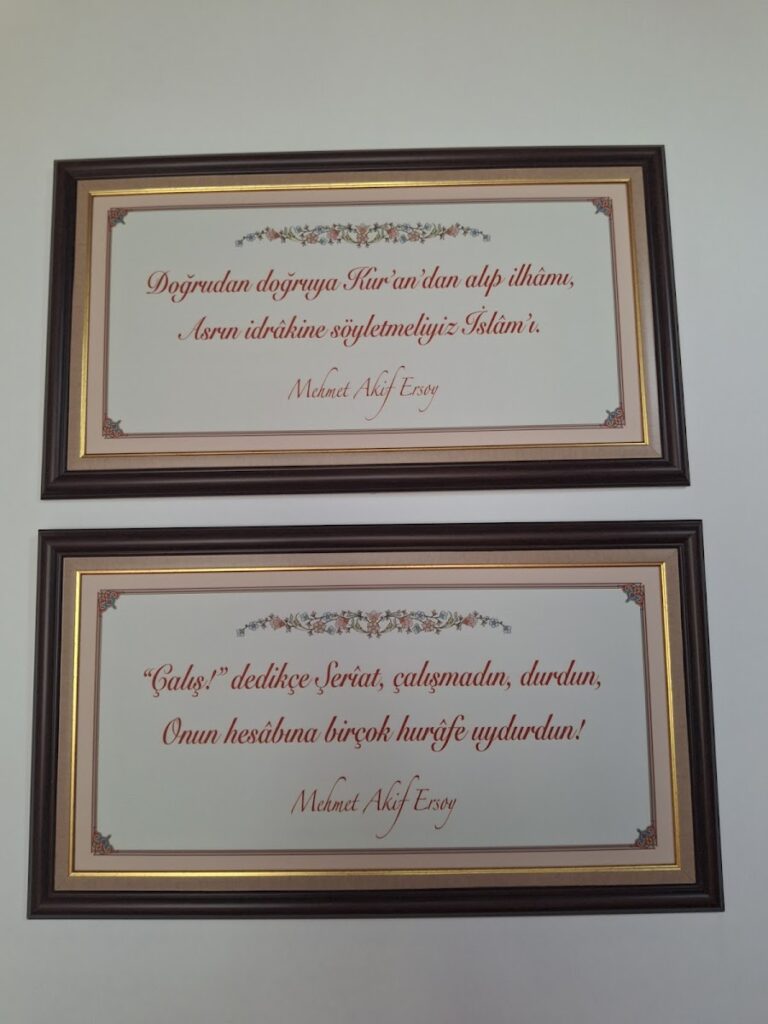 Doğrudan doğruya Kur'an'dan alıp ilhâmı,
Asrın idrâkine söyletmeliyiz İslâm'ı.
Mehmet Akif Ersoy
“Çalış!” dedikçe Şerîat, çalışmadın, durdun,
Onun hesâbına birçok hurâfe uydurdun!
Mehmet Akif Ersoy